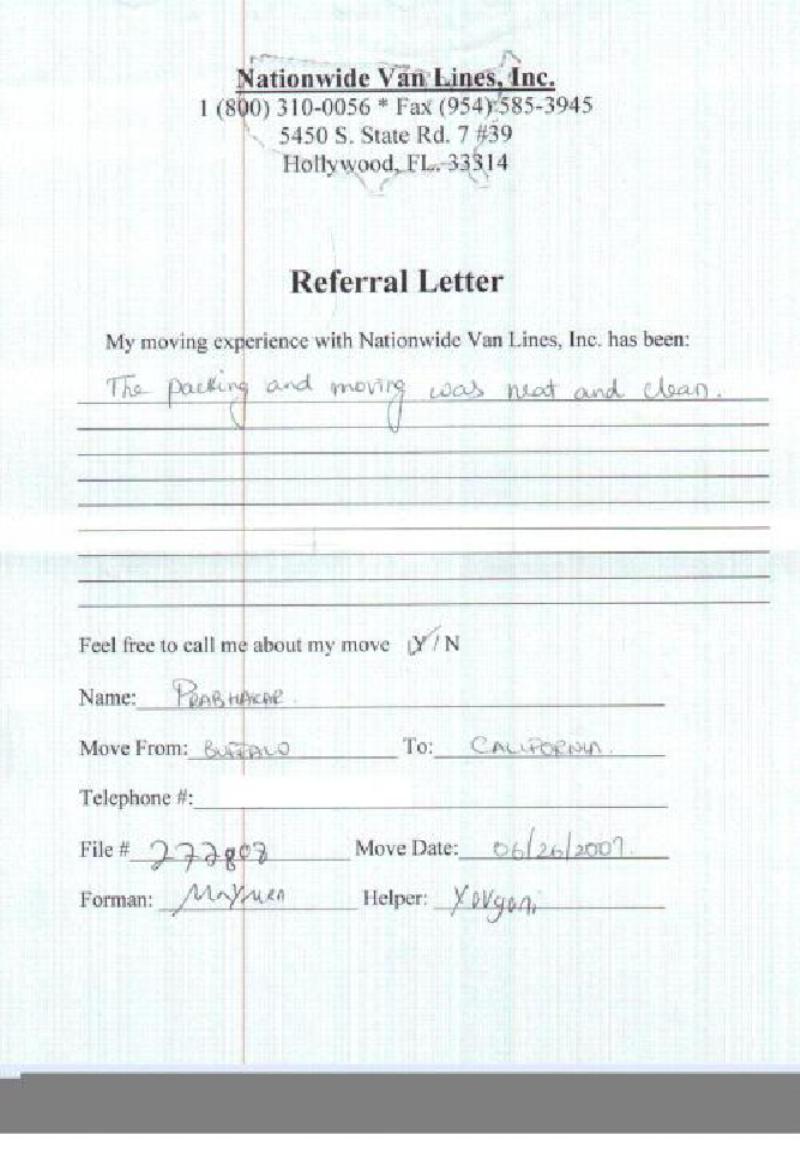 Nationwide Van Lines, Inc.
1 (800) 310-0056 * Fax (954) 585-3945
5450 S. State Rd. 7 #39
Hollywood, FL. 33314
Referral Letter
My moving experience with Nationwide Van Lines, Inc. has been:
The packing and moving was neat and clean.
Feel free to call me about my move Y/N
Name: PRABHAKAR.
Move From: BUFFALO To: CALIFORNIA.
Telephone #:
File # Move Date:
Forman: Helper: